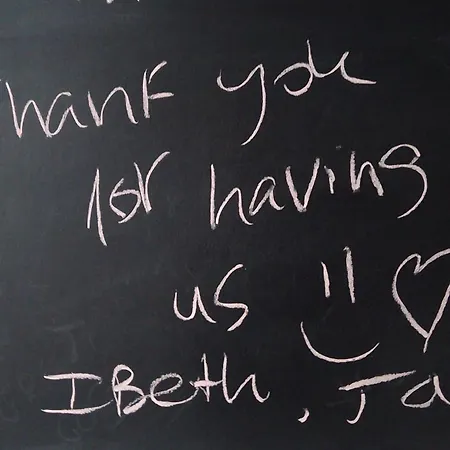 Thank you
for having
us
IBeth, Ja